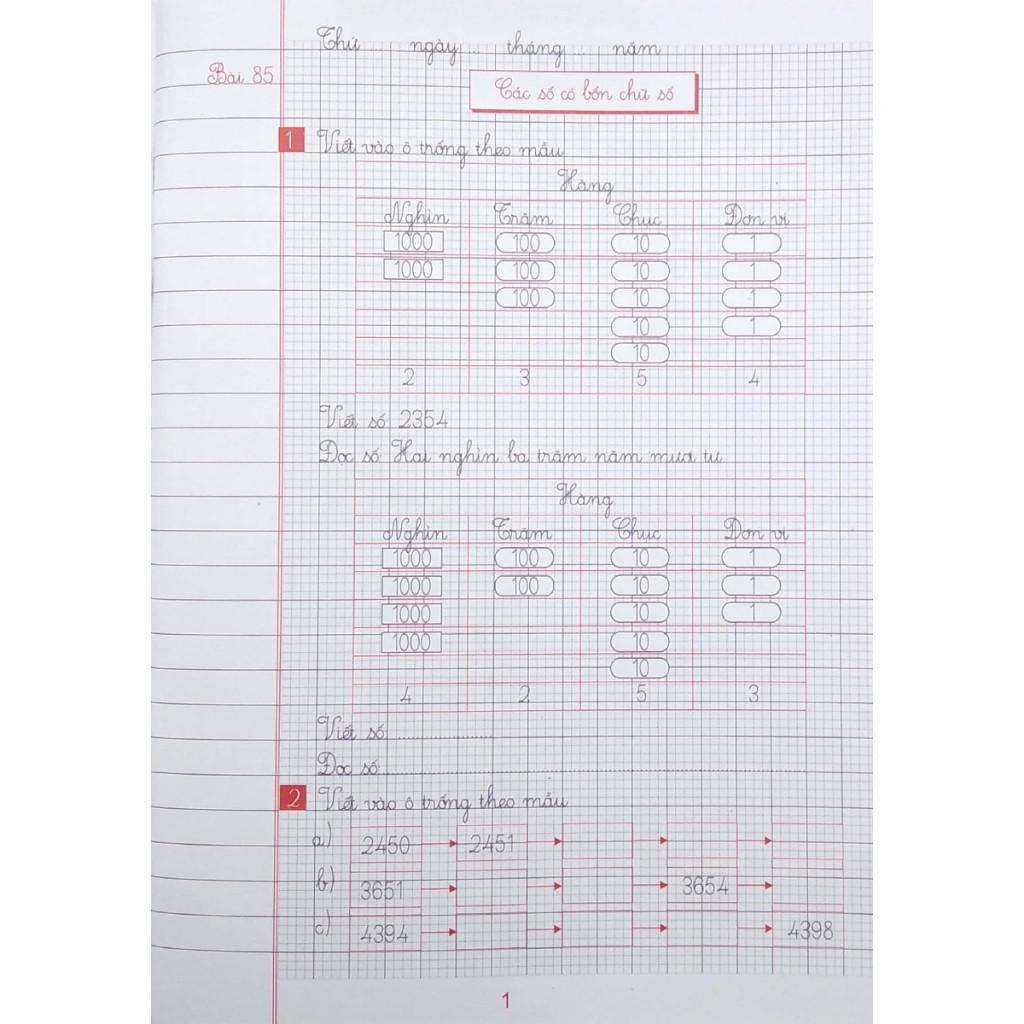 Thứ ... ngày ... tháng ... năm
Bài 85
Các số có bốn chữ số
1 Viết vào ô trống theo mẫu
Hàng
Nghìn Trăm Chục Đơn vị
1000 100 10 1
1000 100 10 1
100 10 1
10 1
10
2 3 5 4
Viết số 2354
Đọc số Hai nghìn ba trăm năm mươi tư
Hàng
Nghìn Trăm Chục Đơn vị
1000 100 10 1
1000 100 10 1
1000 10 1
1000 10
10
4 2 5 3
Viết số ....................
Đọc số ....................
2 Viết vào ô trống theo mẫu
a) 2450 2451
b) 3651 3654
c) 4394 4398
1